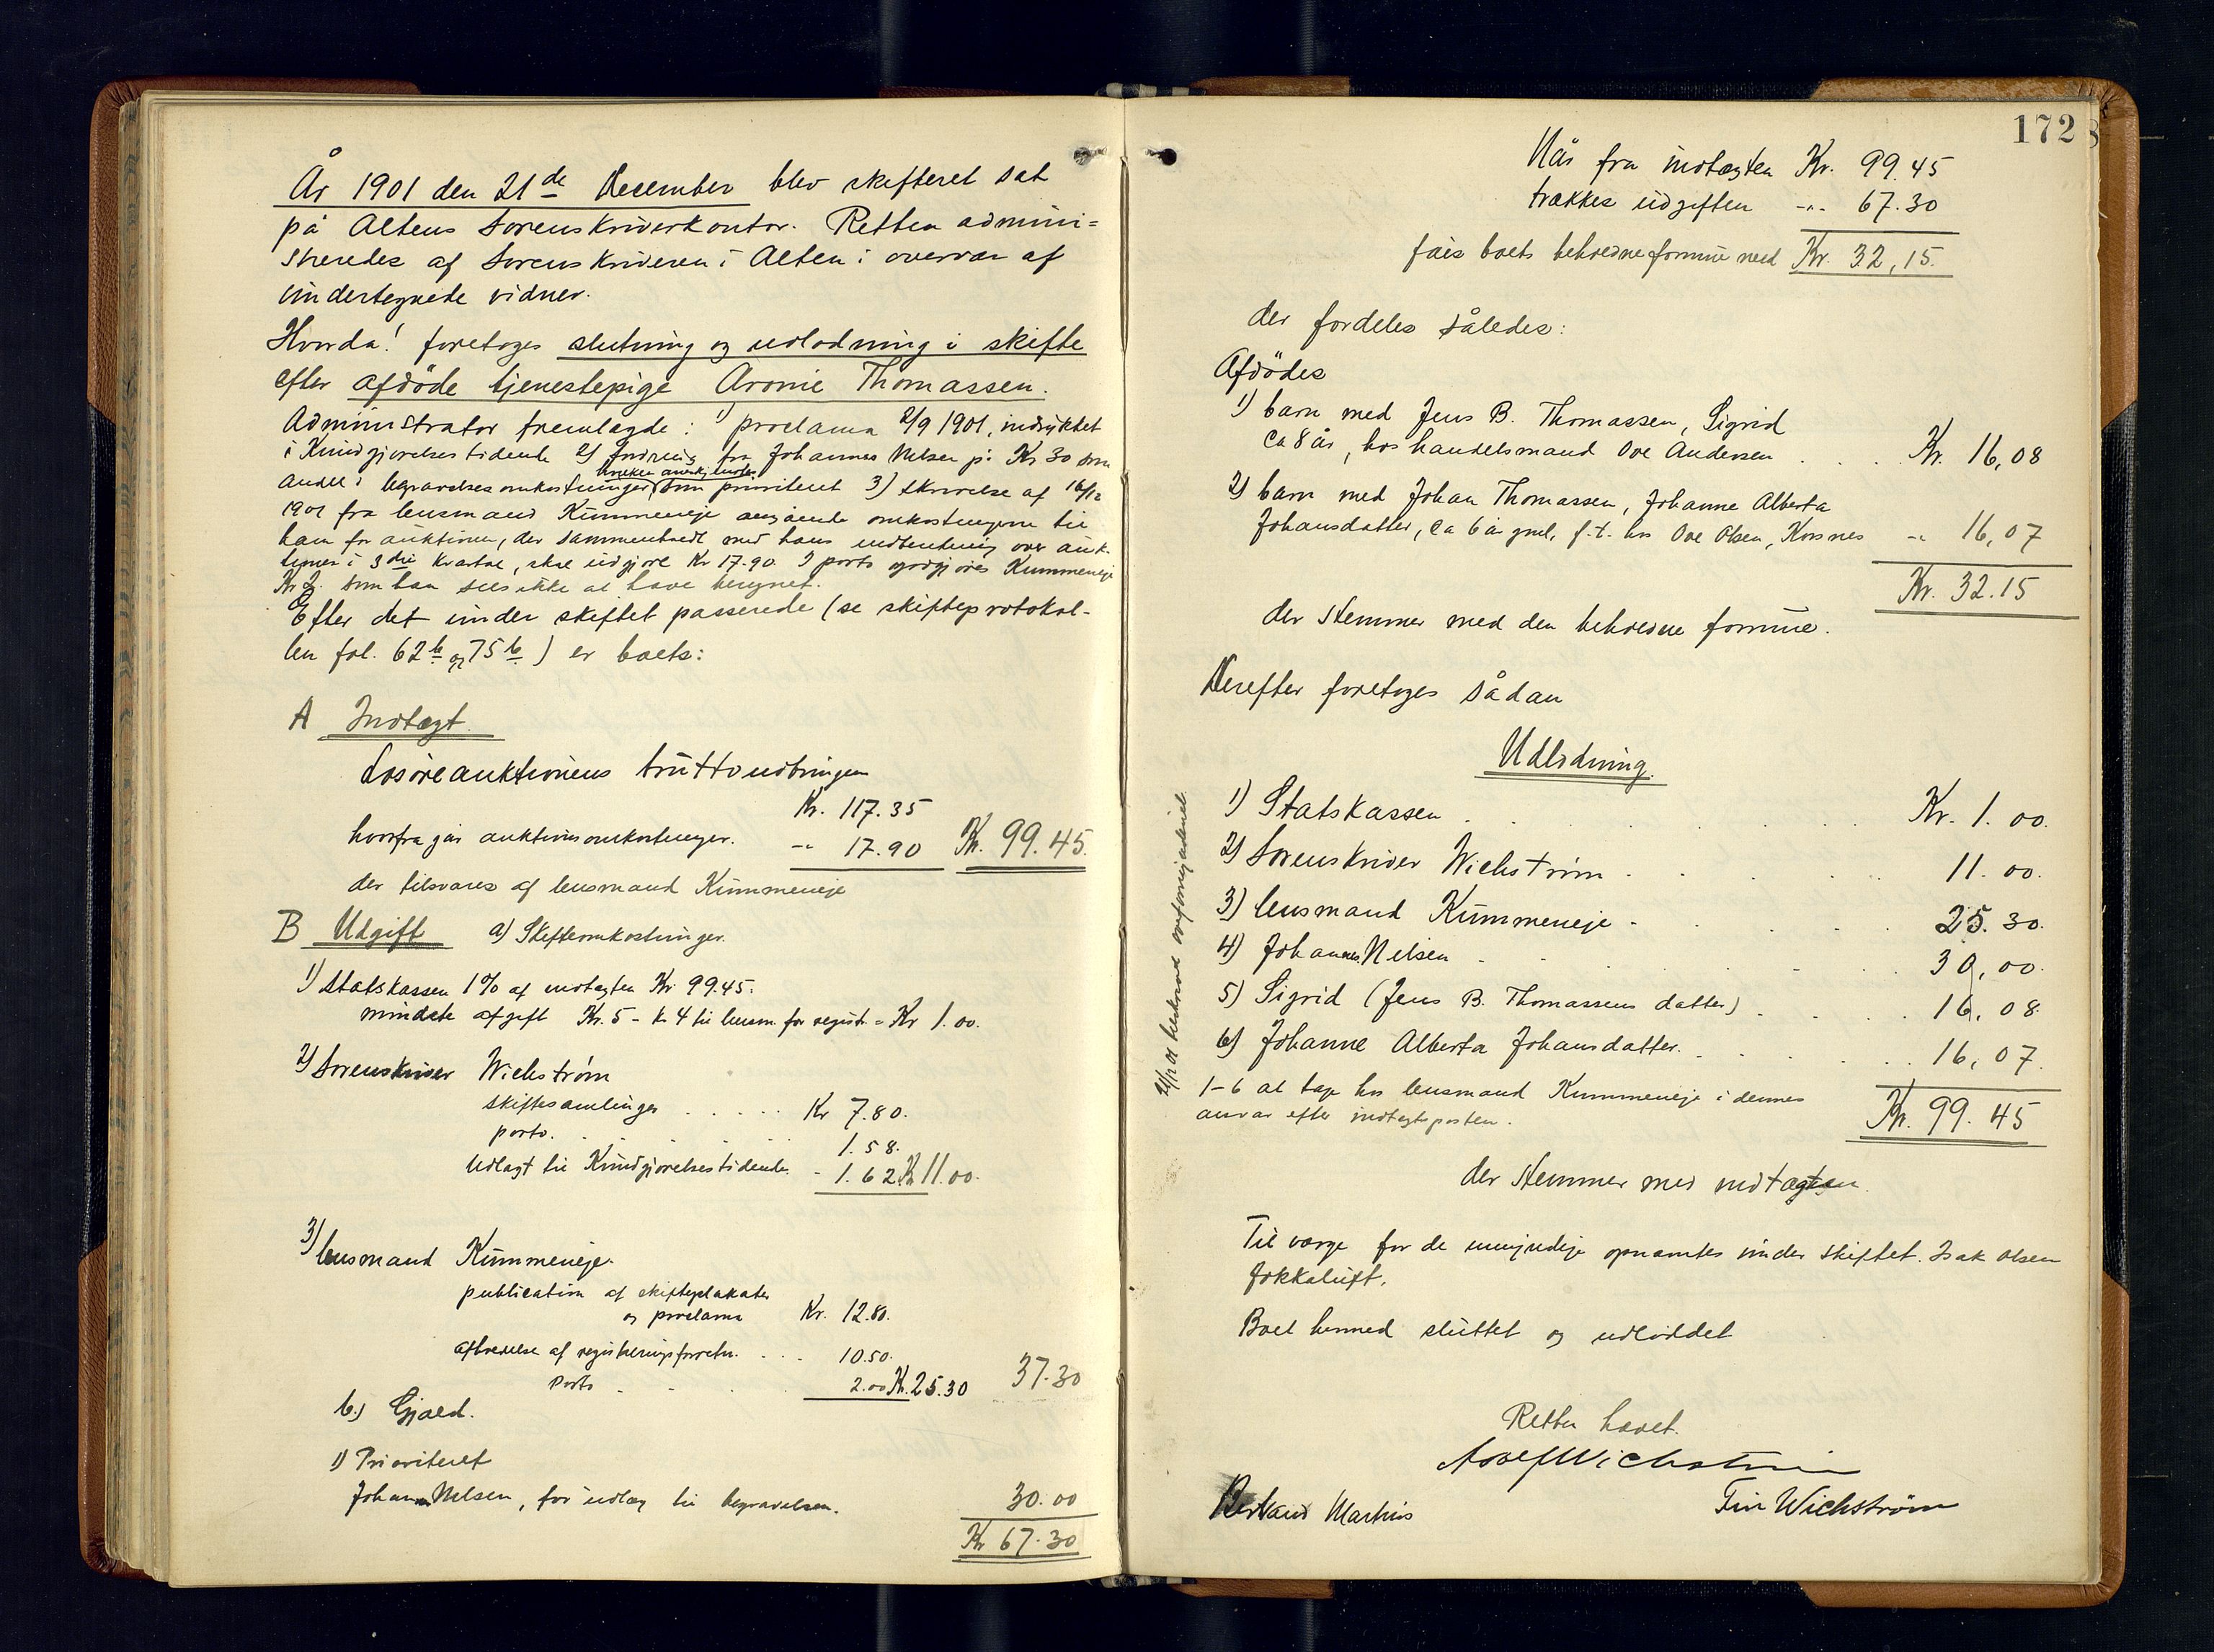 År 1901 den 21de December blev skifteret sat
på Altens Sorenskriverkontor. Retten admini=
streredes af Sorenskriveren i Alten i overvær af
undertegnede vidner.
Hvorda! foretoges slutning og udlodning i skifte
efter afdöde tjenestepige Aronie Thomassen.
Administrator fremlagde: 1) proclama 2/9 1901, indrykket
i Kundgjørelsestidende 2) fordring fra Johannes Nilsen på Kr 30 som
hvilken anerkjendes
andel i begravelsesomkostninger, som prioriteret 3) skrivelse af 16/12
1901 fra lensmand Kummeneje angående omkostningerne til
ham for auktionen, der sammenholdt med hans indberetning over auk-
tioner i 3die kvartal, skal udgjøre Kr 17.90. I porto godgjøres Kummeneje
Kr 2. som han sees ikke at have beregnet.
Efter det under skiftet passerede (se skifteprotokol-
len fol. 62b og 75b) er boets:
A Indtægt.
Losöreauktionens bruttoudbringende
Kr. 117.35
hvorfra går auktionsomkostninger. -"- 17.90 Kr. 99.45.
der tilsvares af lensmand Kummeneje
B Udgift a) Skifteomkostninger.
1) Statskassen 1% af indtægten Kr 99.45.
mindste afgift Kr. 5 - kr 4 til lensm. for registr. = Kr 1.00.
2) Sorenskriver Wichstrøm
skiftesamlinger . . . . . Kr 7.80.
porto. . . . . 1.58.
Udlagt til Kundgjørelsestidende. - 1.62 Kr 11.00.
3) lensmand Kummeneje.
publication af skifteplakater
og proclama Kr. 12.80.
afholdelse af registreringsforretn. . . . 10.50.
porto . . . 2.00 Kr. 25.30 37.30
b.) Gjæld.
1) Prioriteret
Johannes Nilsen, for udlæg til begravelsen. 30.00
Kr 67.30
172
Når fra indtægten Kr. 99.45
trækkes udgiften -"- 67.30
fåes boets beholdne formue med Kr. 32,15.
der fordeles således:
Afdödes
1) barn med Jens B. Thomassen, Sigrid
ca 8 år, hos handelsmand Ove Andersen . . . Kr. 16,08
2) barn med Johan Thomassen, Johanne Alberta
Johansdatter, ca 6 år gml, f.t. hos Ove Olsen, Korsnes -"- 16,07
Kr. 32.15
der stemmer med den beholdne formue.
Derefter foretoges sådan
Udlodning.
1) Statskassen . . . . Kr. 1.00.
2) Sorenskriver Wichstrøm . . . . 11.00.
3) lensmand Kummeneje . . . . 25.30.
4) Johannes Nilsen . . . . 30,00.
5) Sigrid (Jens B. Thomassens datter) . . . . 16,08.
6) Johanne Alberta Johansdatter. . . . . 16,07.
1-6 at tage hos lensmand Kummeneje i dennes
ansvar efter indtægtsposten. Kr. 99.45
der stemmer med indtægten.
Til værge for de umyndige opnævntes under skiftet Isak Olsen
Jokkaluft.
Boet hermed sluttet og udloddet
Retten hævet.
Adolf Wichstrøm
Martius Tin Wichström